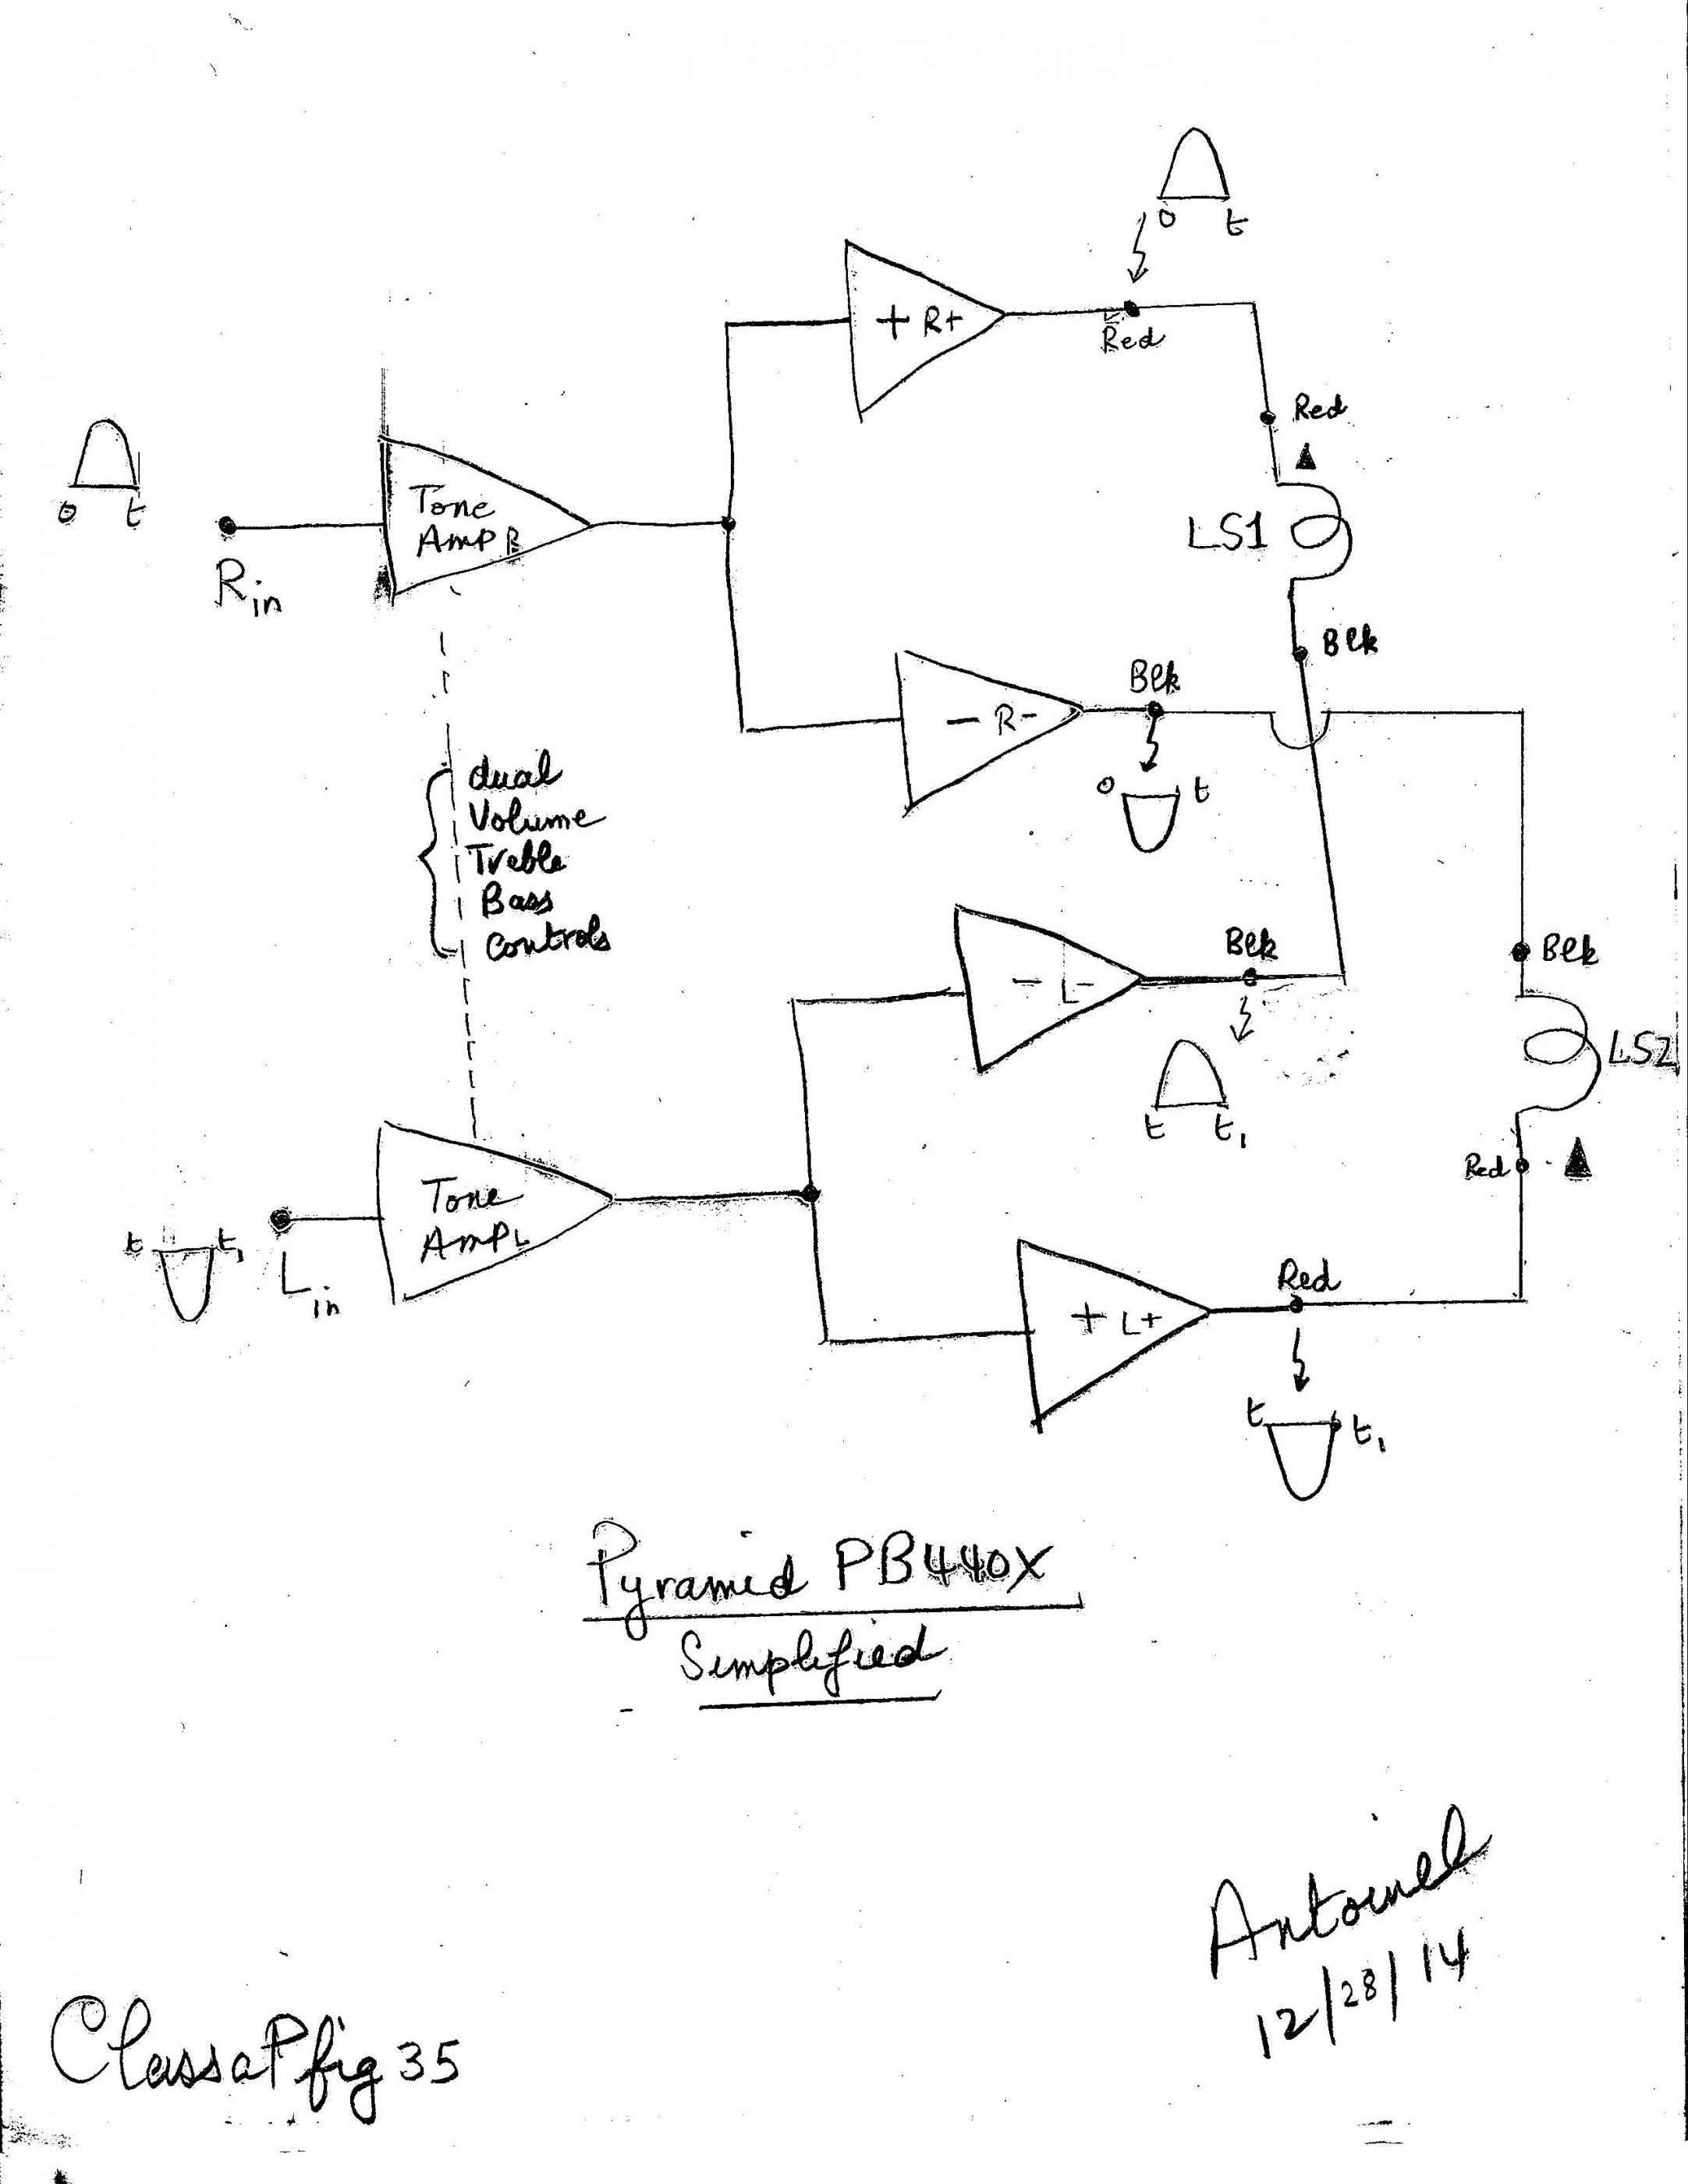 0 t
Red
+ R+
Red
▲
0 t
Tone
Amp R
LS1
Rin
Blk
Blk
- R-
0 t
dual
Volume
Treble
Bass
Controls
Blk
Blk
- L-
LS2
t t1
Red
▲
Tone
AmpL
t t1
Lin
Red
+ L+
t t1
Pyramid PB440X
Simplified
Antoinel
12/28/14
ClassaP fig 35